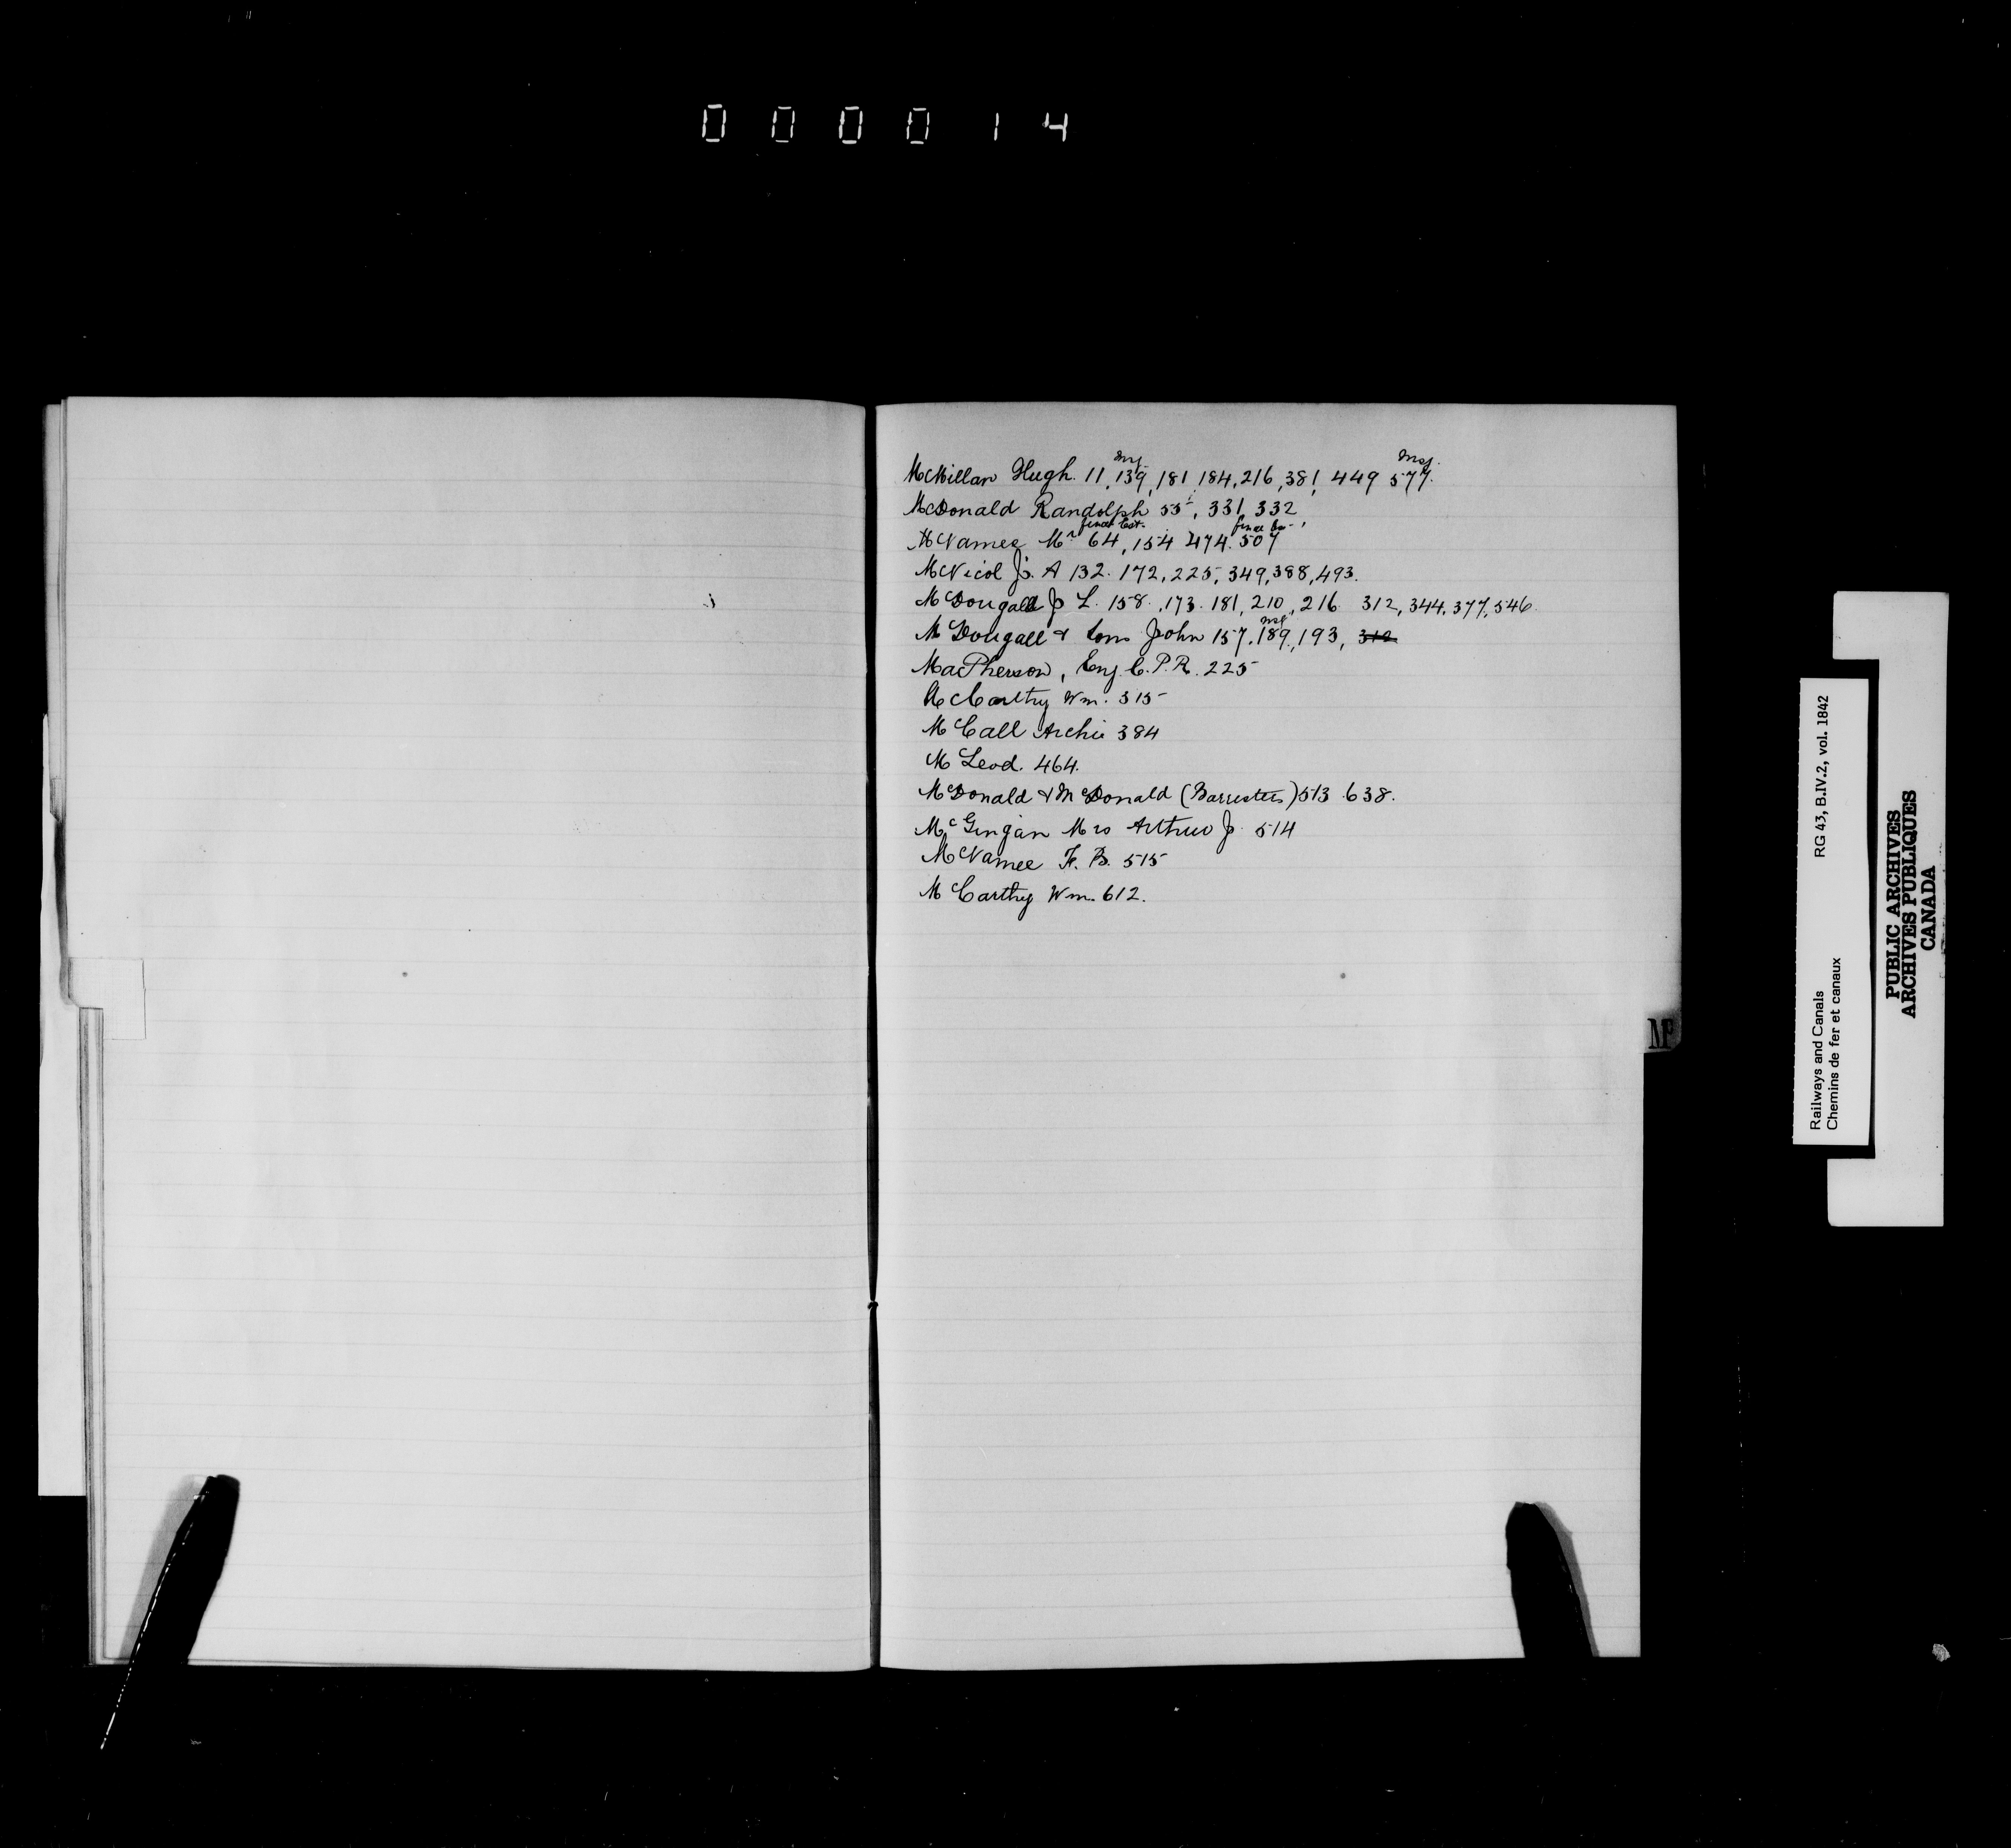 000014
Msg. Msg.
McMillan Hugh. 11, 139, 181, 184, 216, 381, 449 577.
McDonald Randolph 55, 331, 332
final Est. final
McNamee Mr 64, 154 474. 507
McNicol J. A 132. 172, 225, 349, 388, 493.
McDougall J L. 158. ,173. 181, 210, 216 312, 344, 377, 546
Msg
McDougall & Sons John 157, 189, 193, 312
MacPherson, Eng. C.P.R. 225
McCarthy Wm. 315
McCall Archie 384
McLeod. 464.
McDonald & McDonald (Barristers) 513 .638.
McGingan Mrs Arthur J. 514
McNamee F. B. 515
McCarthy Wm. 612.
Mc
Railways and Canals RG 43, B.IV.2, vol. 1842
Chemins de fer et canaux
PUBLIC ARCHIVES
ARCHIVES PUBLIQUES
CANADA